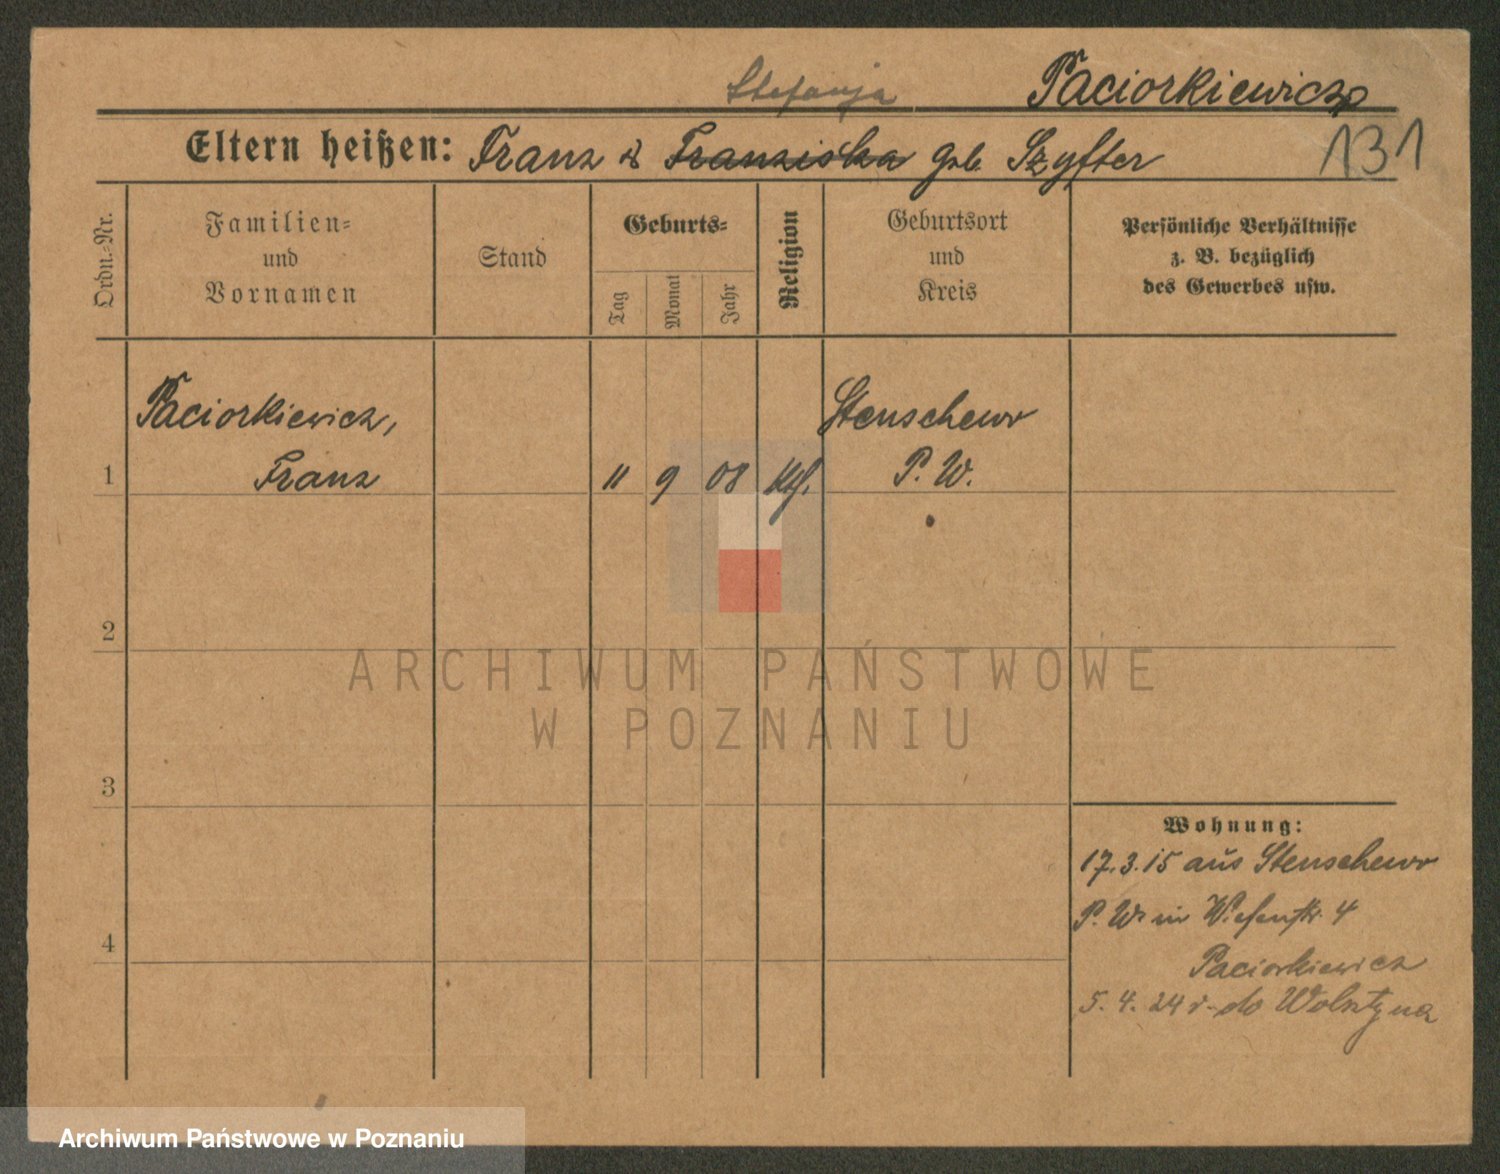 Stefanja Paciorkiewicz
Eltern heißen: Franz & Franziska geb. Szyfter
131
Ordn.-Nr.
Familien-
und
Vornamen
Stand
Geburts-
Tag
Monat
Jahr
Religion
Geburtsort
und
Kreis
Persönliche Verhältnisse
z. B. bezüglich
des Gewerbes usw.
Paciorkiewicz,
Stenschewo
1 Franz 11 9 08 Kth. P. W.
2
ARCHIWUM PAŃSTWOWE
W POZNANIU
3
Wohnung:
17.3.15 aus Stenschewo
P. W. in Wiesenstr. 4
4
Paciorkiewicz
5. 4. 24 r. do Wolsztyna
Archiwum Państwowe w Poznaniu